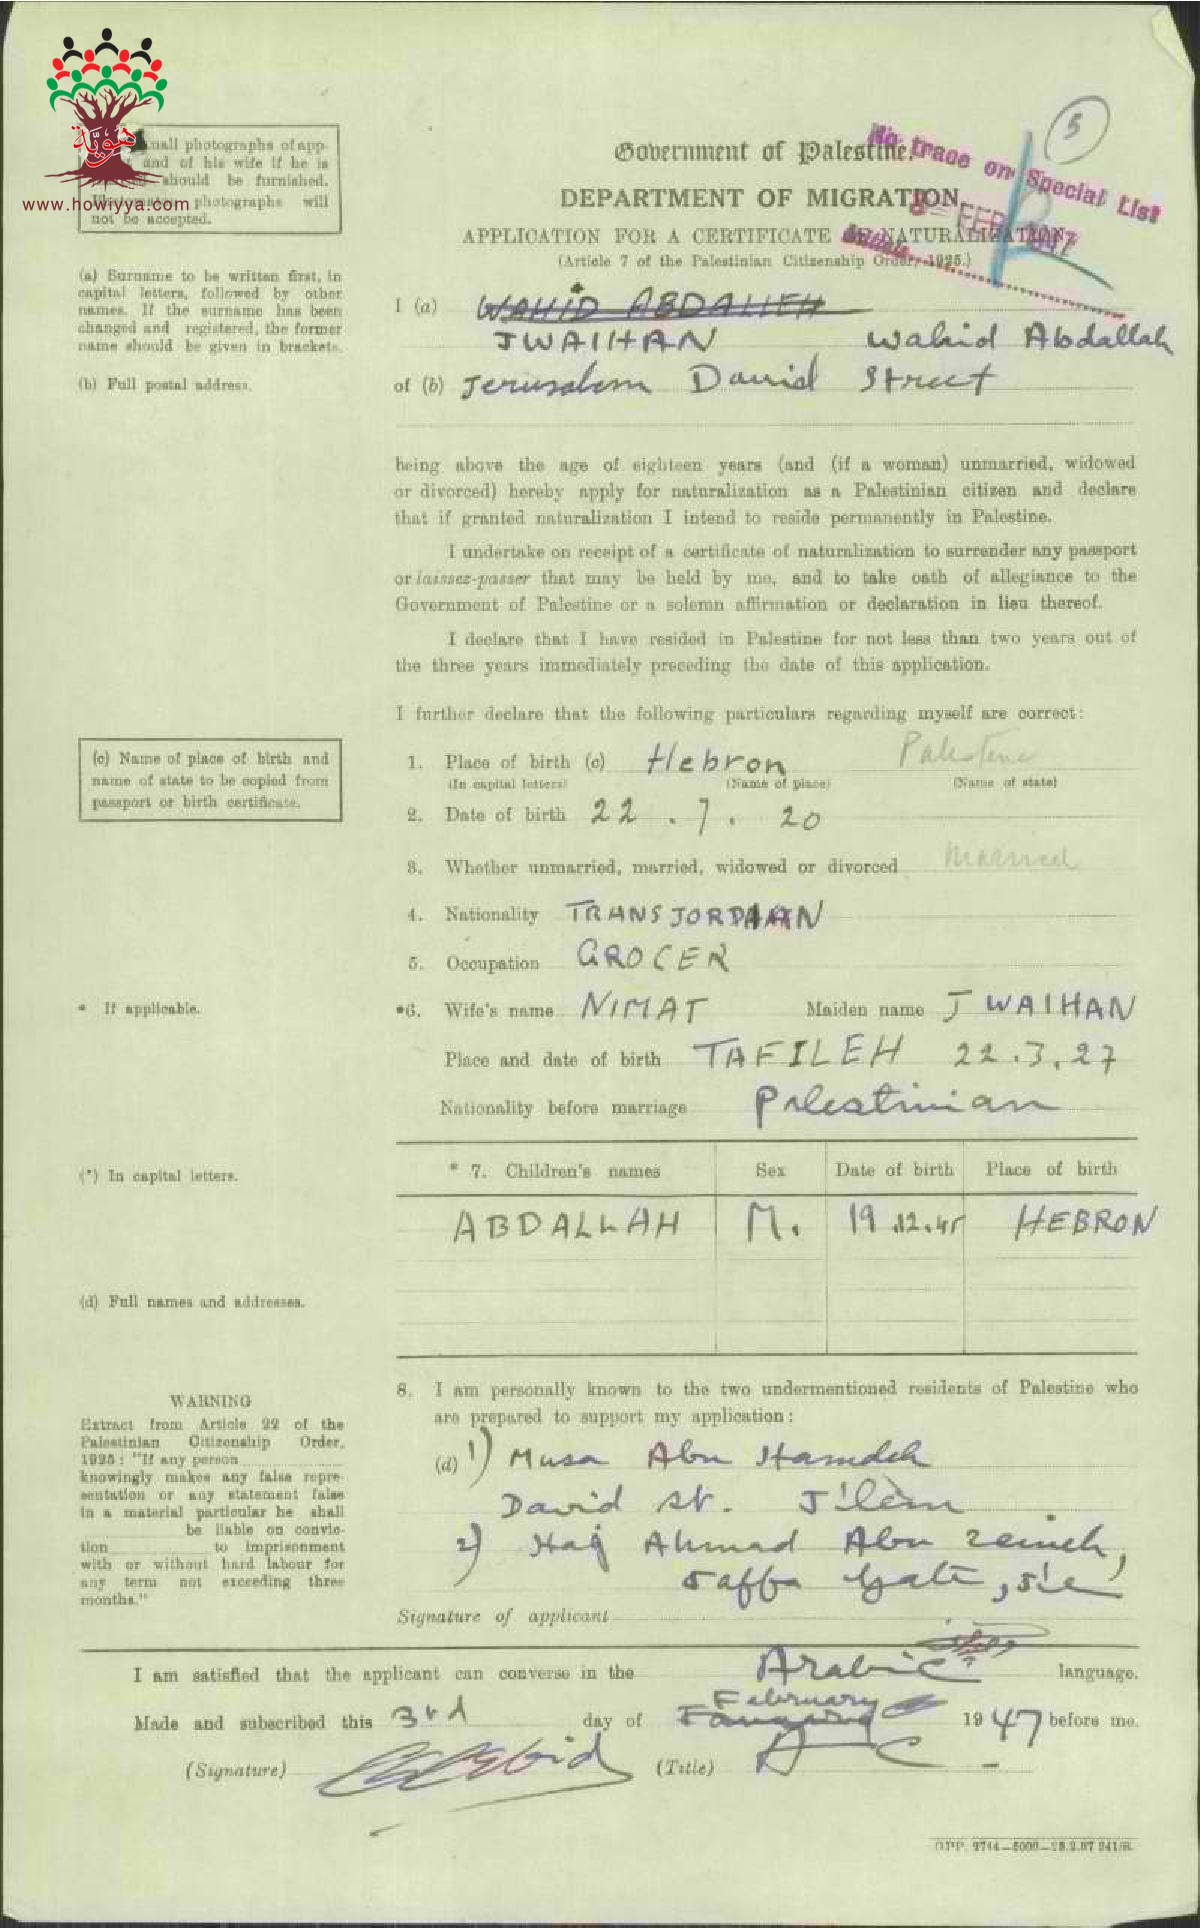 هوية
www.howiyya.com
5
No trace on Special List
FEB 1947
Government of Palestine.
DEPARTMENT OF MIGRATION.
APPLICATION FOR A CERTIFICATE OF NATURALIZATION
(Article 7 of the Palestinian Citizenship Order, 1925.)
small photographs of app-
and of his wife if he is
should be furnished.
photographs will
not be accepted.
(a) Surname to be written first, in
capital letters, followed by other
names. If the surname has been
changed and registered, the former
name should be given in brackets.
I (a) WAHID ABDALLEH
JWAIHAN Wahid Abdallah
(b) Full postal address.
of (b) Jerusalem David Street
being above the age of eighteen years (and (if a woman) unmarried, widowed
or divorced) hereby apply for naturalization as a Palestinian citizen and declare
that if granted naturalization I intend to reside permanently in Palestine.
I undertake on receipt of a certificate of naturalization to surrender any passport
or laissez-passer that may be held by me, and to take oath of allegiance to the
Government of Palestine or a solemn affirmation or declaration in lieu thereof.
I declare that I have resided in Palestine for not less than two years out of
the three years immediately preceding the date of this application.
I further declare that the following particulars regarding myself are correct:
(c) Name of place of birth and
name of state to be copied from
passport or birth certificate.
1. Place of birth (c) Hebron Palestine
(In capital letters) (Name of place) (Name of state)
2. Date of birth 22 . 7 . 20
3. Whether unmarried, married, widowed or divorced Married
4. Nationality TRANSJORDAN
5. Occupation GROCER
* If applicable.
*6. Wife's name NIMAT Maiden name JWAIHAN
Place and date of birth TAFILEH 22.3.27
Nationality before marriage Palestinian
(*) In capital letters.
* 7. Children's names Sex Date of birth Place of birth
ABDALLAH M. 19.12.45 HEBRON
(d) Full names and addresses.
8. I am personally known to the two undermentioned residents of Palestine who
are prepared to support my application:
(d) 1) Musa Abu Hamdeh
David St. J'lem
2) Haj Ahmad Abu Zeineh,
Jaffa Gate,
Signature of applicant
WARNING
Extract from Article 22 of the
Palestinian Citizenship Order,
1925: "If any person
knowingly makes any false repre-
sentation or any statement false
in a material particular he shall
be liable on convic-
tion to imprisonment
with or without hard labour for
any term not exceeding three
months."
I am satisfied that the applicant can converse in the Arabic language.
February
Made and subscribed this 3rd day of January 1947 before me.
(Signature) (Title) A C
OPP. 9744—5000—28.2.37 241/R.